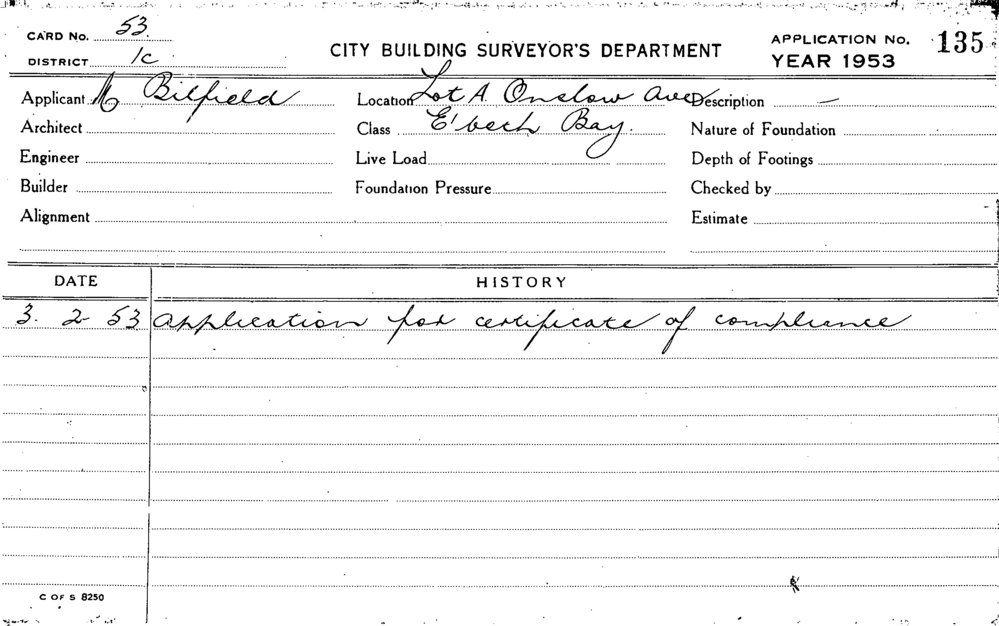 CARD No. 53.
CITY BUILDING SURVEYOR'S DEPARTMENT
APPLICATION No. 135
DISTRICT 1C
YEAR 1953
Applicant M Bilfield Location Lot A. Onslow Ave Description —
Architect Class E'beth Bay. Nature of Foundation
Engineer Live Load Depth of Footings
Builder Foundation Pressure Checked by
Alignment Estimate
DATE HISTORY
3. 2 53 Application for certificate of compliance
C OF S 8250